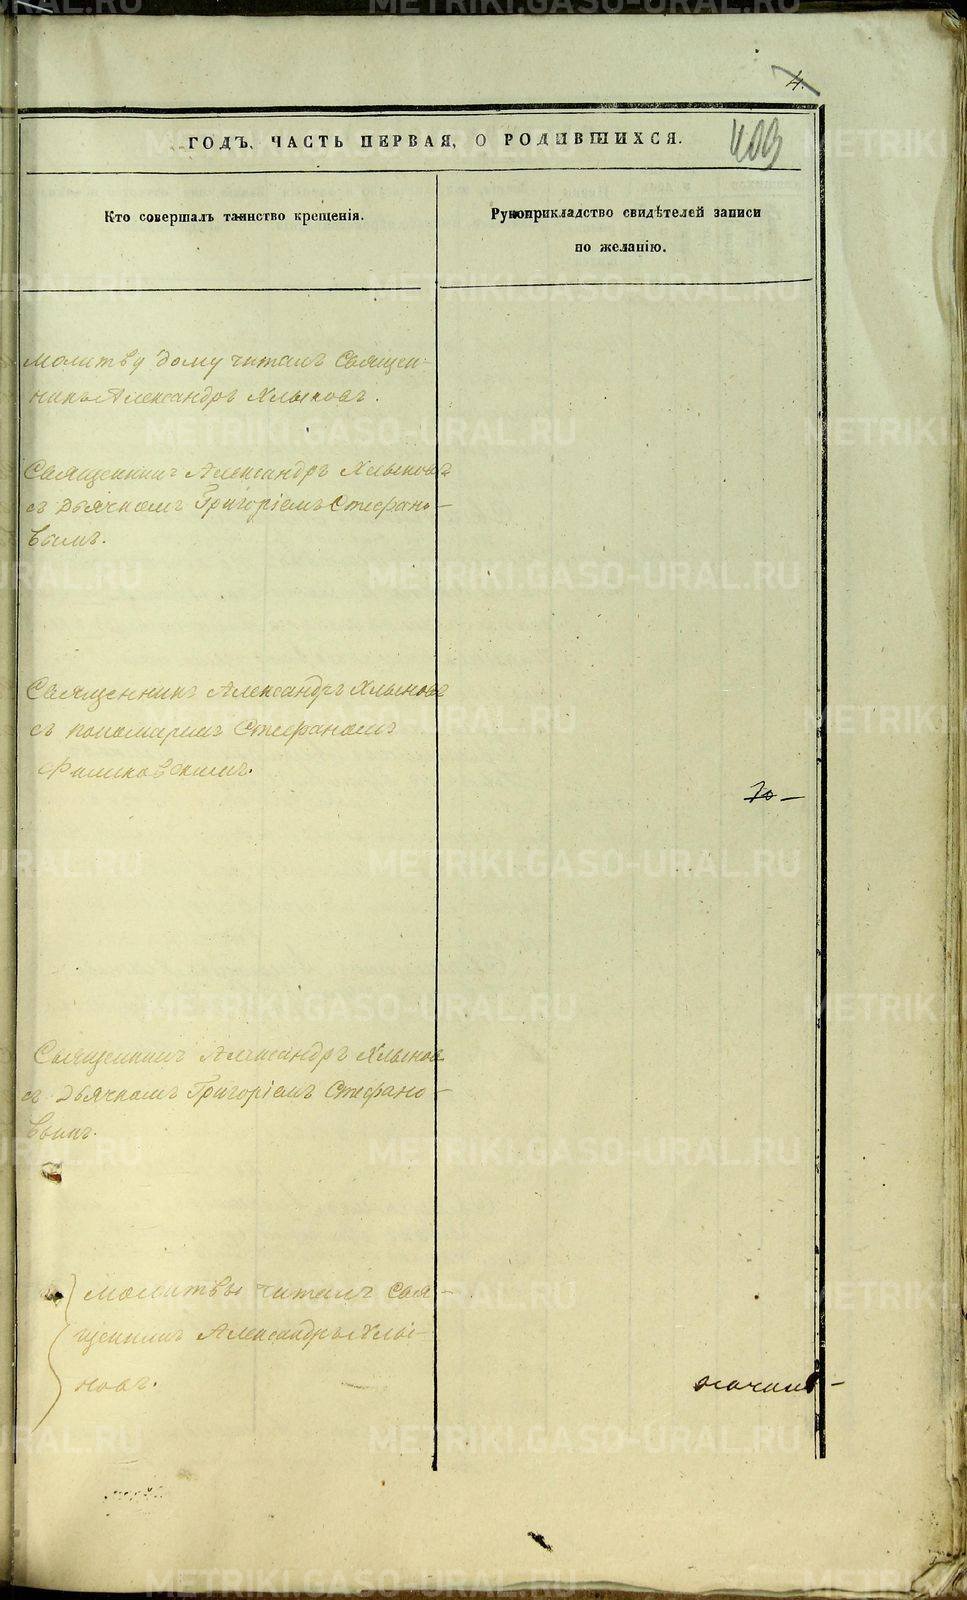 4.
ГОДЪ, ЧАСТЬ ПЕРВАЯ, О РОДИВШИХСЯ.
403
Кто совершалъ таинство крещенія.
Рукоприкладство свидѣтелей записи
по желанію.
Молитву дому читалъ Священ-
никъ Александръ Хлыновъ.
Священникъ Александръ Хлыновъ
съ Дьячкомъ Григоріемъ Стефано-
вымъ.
Священникъ Александръ Хлыновъ
съ пономаремъ Стефаномъ
Священникъ Александръ Хлыновъ
съ Дьячкомъ Григоріемъ Стефано-
вымъ.
Молитвы читалъ Свя-
щенникъ Александръ Хлы-
новъ.
METRIKI.GASO-URAL.RU